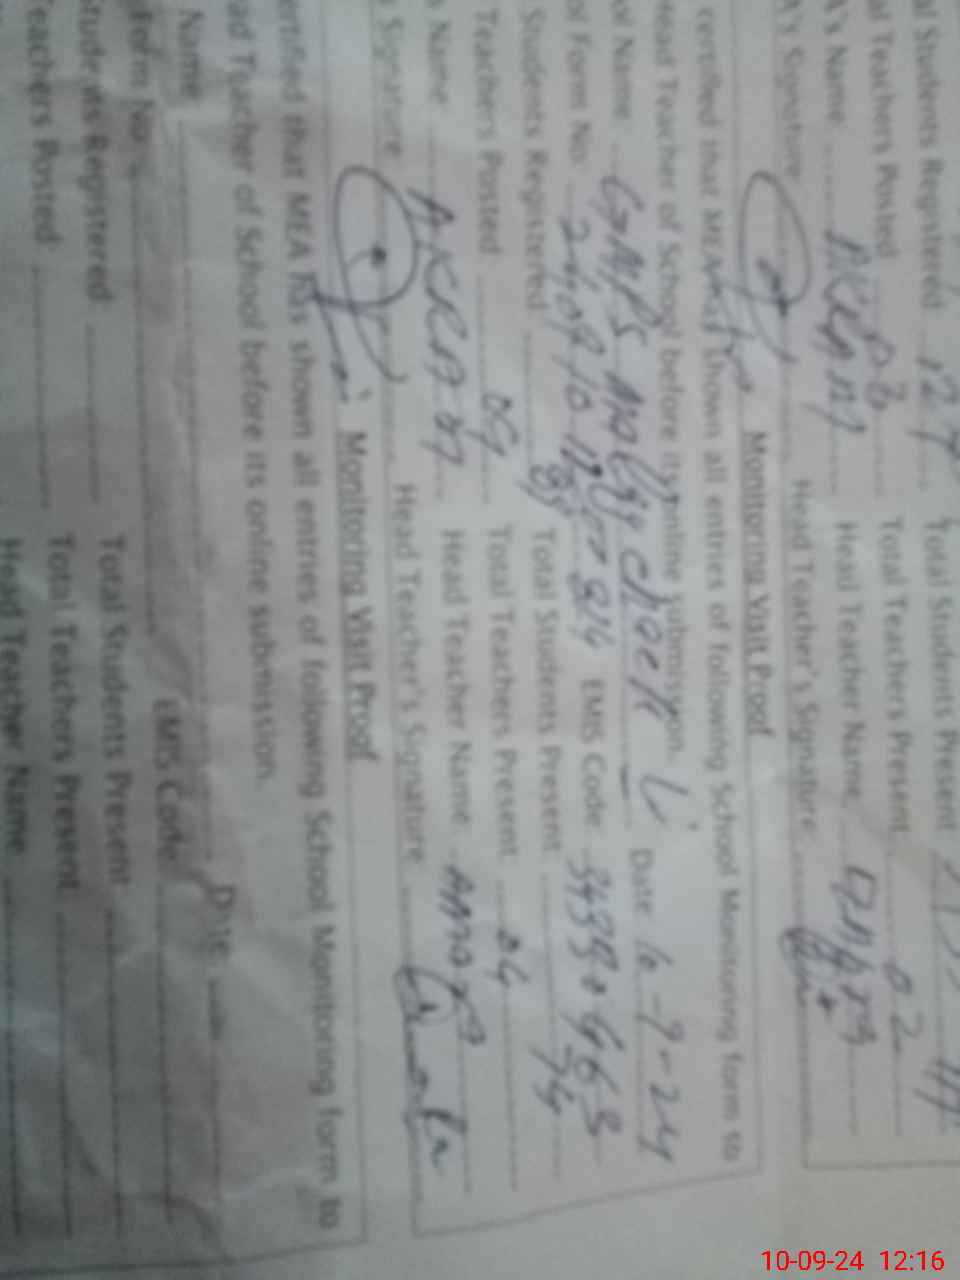 al Students Registered 127 Total Students Present
al Teachers Posted 03 Total Teachers Present 02
A's Name AKRAM Head Teacher Name
A's Signature Head Teacher's Signature
Monitoring Visit Proof
certified that MEA has shown all entries of following School Monitoring form to
Head Teacher of School before its online submission.
ool Name GMPS Chack Date 10-9-24
ol Form No. EMIS Code
Students Registered 89 Total Students Present 74
Teachers Posted 04 Total Teachers Present 04
s Name AKRAM Head Teacher Name
s Signature Head Teacher's Signature
Monitoring Visit Proof
ertified that MEA has shown all entries of following School Monitoring form to
ead Teacher of School before its online submission.
Name Date
Form No. EMIS Code
Students Registered Total Students Present
Teachers Posted Total Teachers Present
Head Teacher Name
10-09-24 12:16